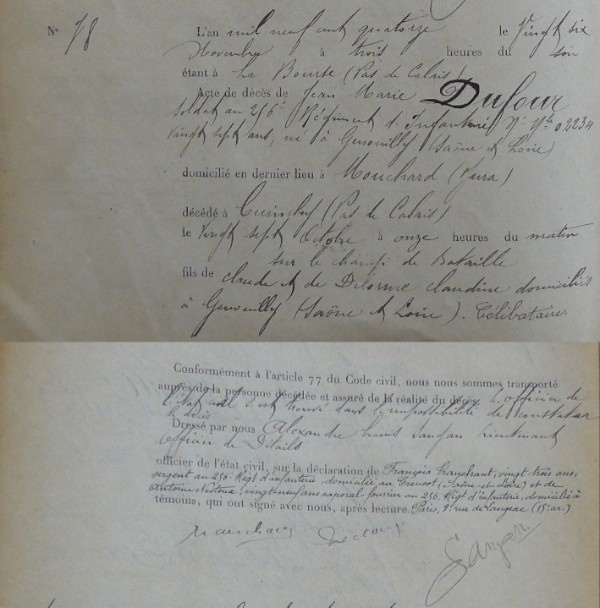 N° 78
L'an mil neuf cent quatorze le Vingt six
Novembre à trois heures du soir
étant à La Bourse (Pas de Calais)
Acte de décès de Jean Marie Dufour
soldat au 256e Régiment d'Infanterie, N° Mle 02234
Vingt sept ans, né à Genouilly (Saône et Loire)
domicilié en dernier lieu à Mouchard (Jura)
décédé à Cuinchy (Pas de Calais)
le Vingt sept Octobre à onze heures du matin
sur le champ de Bataille
fils de Claude et de Delorme Claudine domiciliés
à Genouilly (Saône et Loire). Célibataire.
Conformément à l'article 77 du Code civil, nous nous sommes transporté
auprès de la personne décédée et assuré de la réalité du décès. L'officier de
l'état civil s'est trouvé dans l'impossibilité de constater
le décès
Dressé par nous Alexandre Louis lieutenant
officier de Détails
officier de l'état civil, sur la déclaration de François Franchant, vingt-trois ans,
sergent au 256e Régt d'infanterie, domicilié au Creusot (Saône-et-Loire) et de
Antoine vingt-neuf ans caporal fourrier au 256e Régt d'infanterie, domicilié à
témoins, qui ont signé avec nous, après lecture. Paris, rue de Langeac (15e ar.)